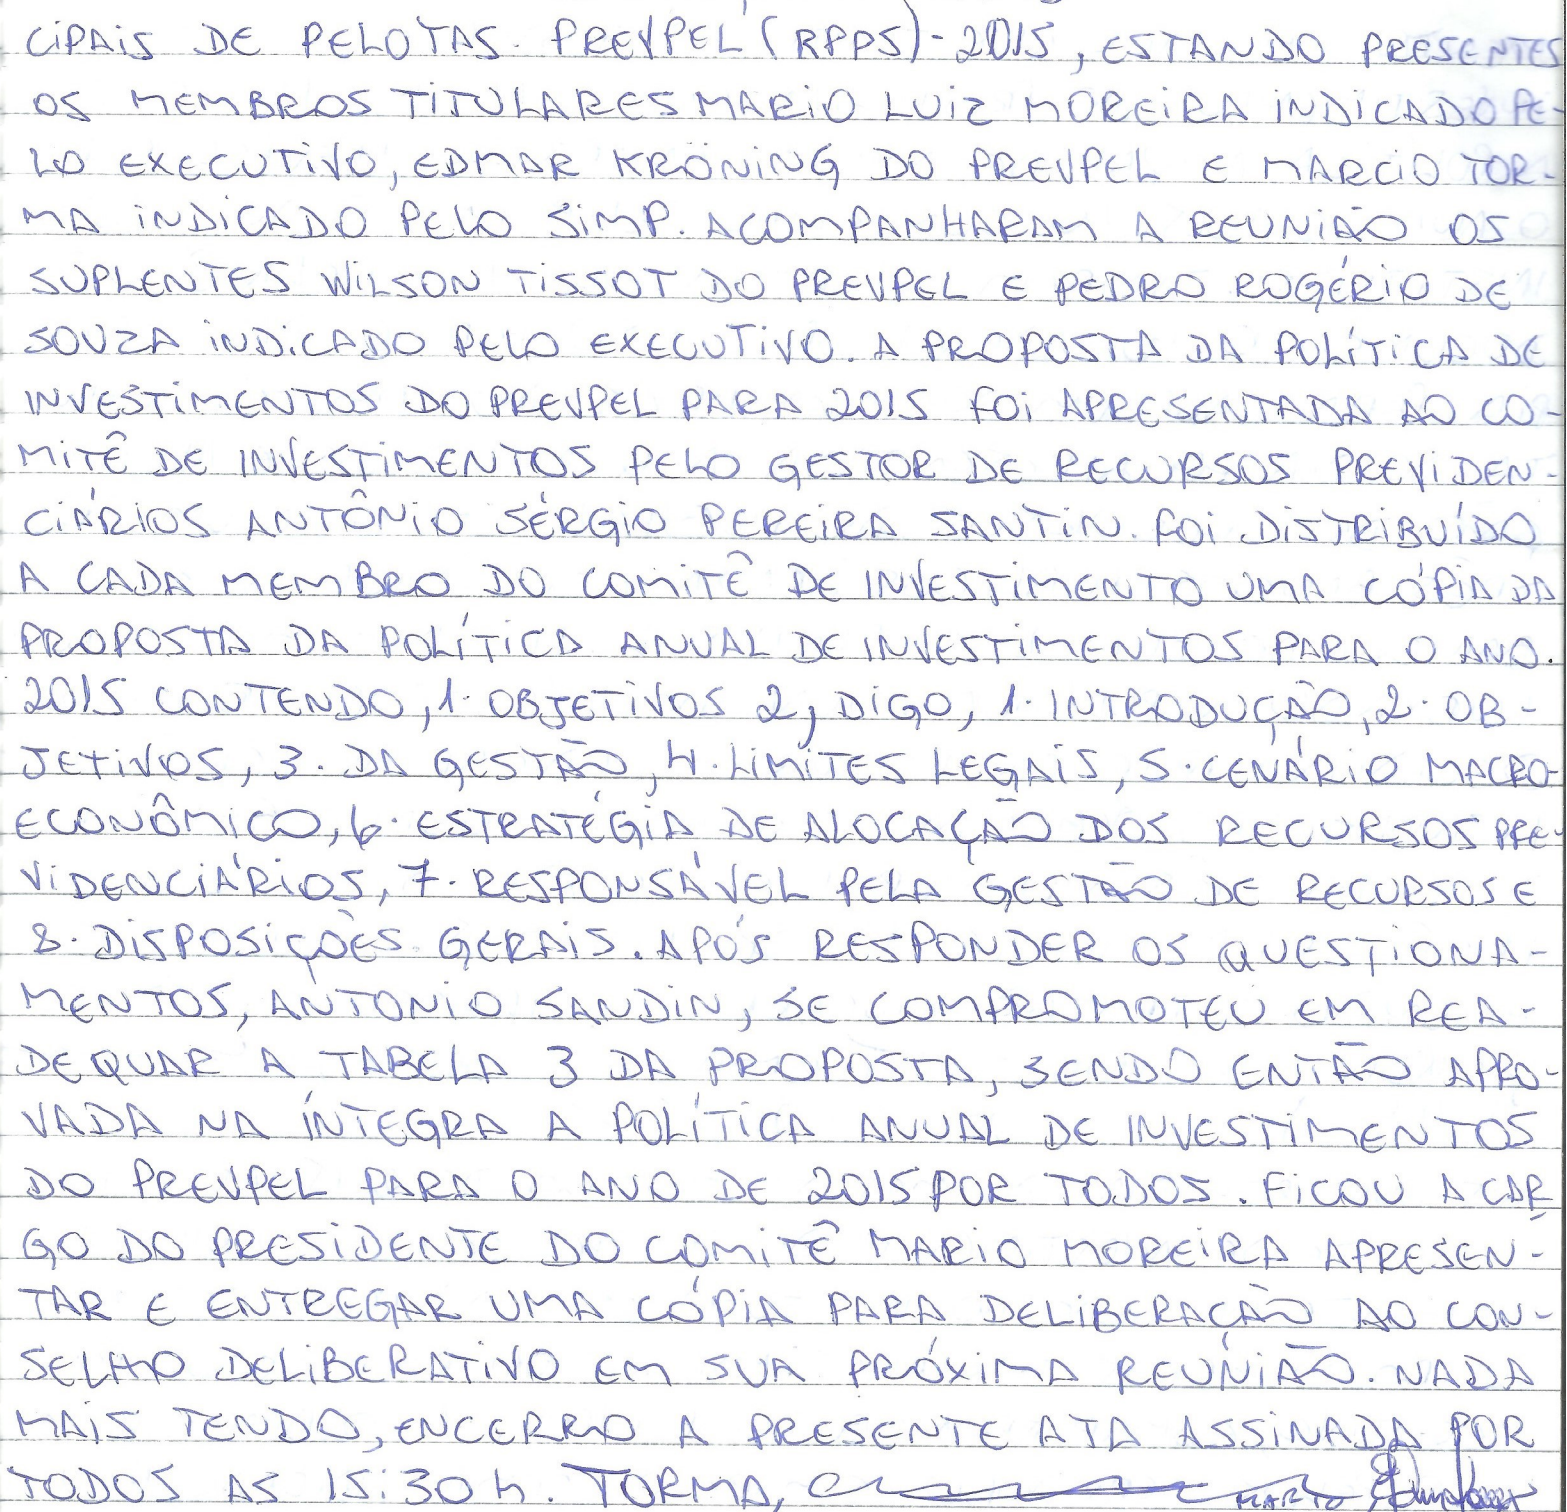 CIPAIS DE PELOTAS. PREVPEL (RPPS) - 2015, ESTANDO PRESENTES
OS MEMBROS TITULARES MARIO LUIZ MOREIRA INDICADO PE-
LO EXECUTIVO, EDMAR KRÖNING DO PREVPEL E MARCIO TOR-
MA INDICADO PELO SIMP. ACOMPANHARAM A REUNIÃO OS
SUPLENTES WILSON TISSOT DO PREVPEL E PEDRO ROGÉRIO DE
SOUZA INDICADO PELO EXECUTIVO. A PROPOSTA DA POLÍTICA DE
INVESTIMENTOS DO PREVPEL PARA 2015 FOI APRESENTADA AO CO-
MITÊ DE INVESTIMENTOS PELO GESTOR DE RECURSOS PREVIDEN-
CIÁRIOS ANTÔNIO SÉRGIO PEREIRA SANTIN. FOI DISTRIBUÍDO
A CADA MEMBRO DO COMITÊ DE INVESTIMENTO UMA CÓPIA DA
PROPOSTA DA POLÍTICA ANUAL DE INVESTIMENTOS PARA O ANO.
2015 CONTENDO, 1. OBJETIVOS 2, DIGO, 1. INTRODUÇÃO, 2. OB-
JETIVOS, 3. DA GESTÃO, 4. LIMITES LEGAIS, 5. CENÁRIO MACRO-
ECONÔMICO, 6. ESTRATÉGIA DE ALOCAÇÃO DOS RECURSOS PRE-
VIDENCIÁRIOS, 7. RESPONSÁVEL PELA GESTÃO DE RECURSOS E
8. DISPOSIÇÕES GERAIS. APÓS RESPONDER OS QUESTIONA-
MENTOS, ANTONIO SANDIN, SE COMPROMOTEU EM REA-
DEQUAR A TABELA 3 DA PROPOSTA, SENDO ENTÃO APRO-
VADA NA ÍNTEGRA A POLÍTICA ANUAL DE INVESTIMENTOS
DO PREVPEL PARA O ANO DE 2015 POR TODOS. FICOU A CAR
GO DO PRESIDENTE DO COMITÊ MARIO MOREIRA APRESEN-
TAR E ENTREGAR UMA CÓPIA PARA DELIBERAÇÃO AO CON-
SELHO DELIBERATIVO EM SUA PRÓXIMA REUNIÃO. NADA
MAIS TENDO, ENCERRO A PRESENTE ATA ASSINADA POR
TODOS AS 15:30 h. TORMA, MARIO